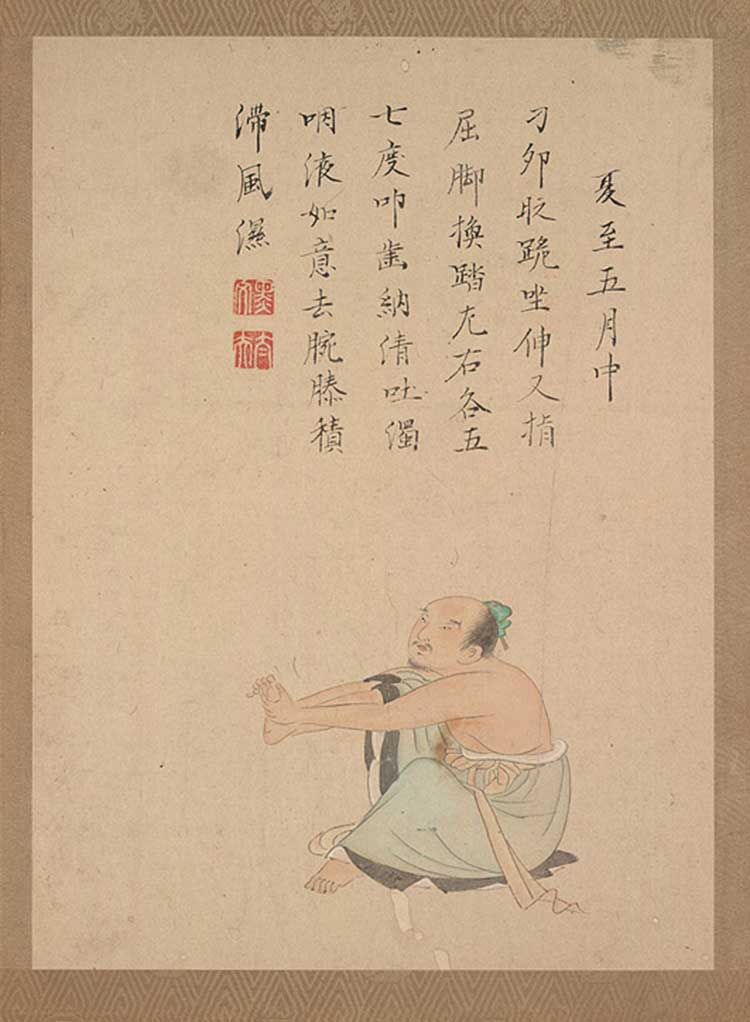 夏至五月中
刁夘跪坐伸又指
屈脚換踏左右各五
七度叩歯納清吐濁
咽液如意去腕膝積
滯風濕